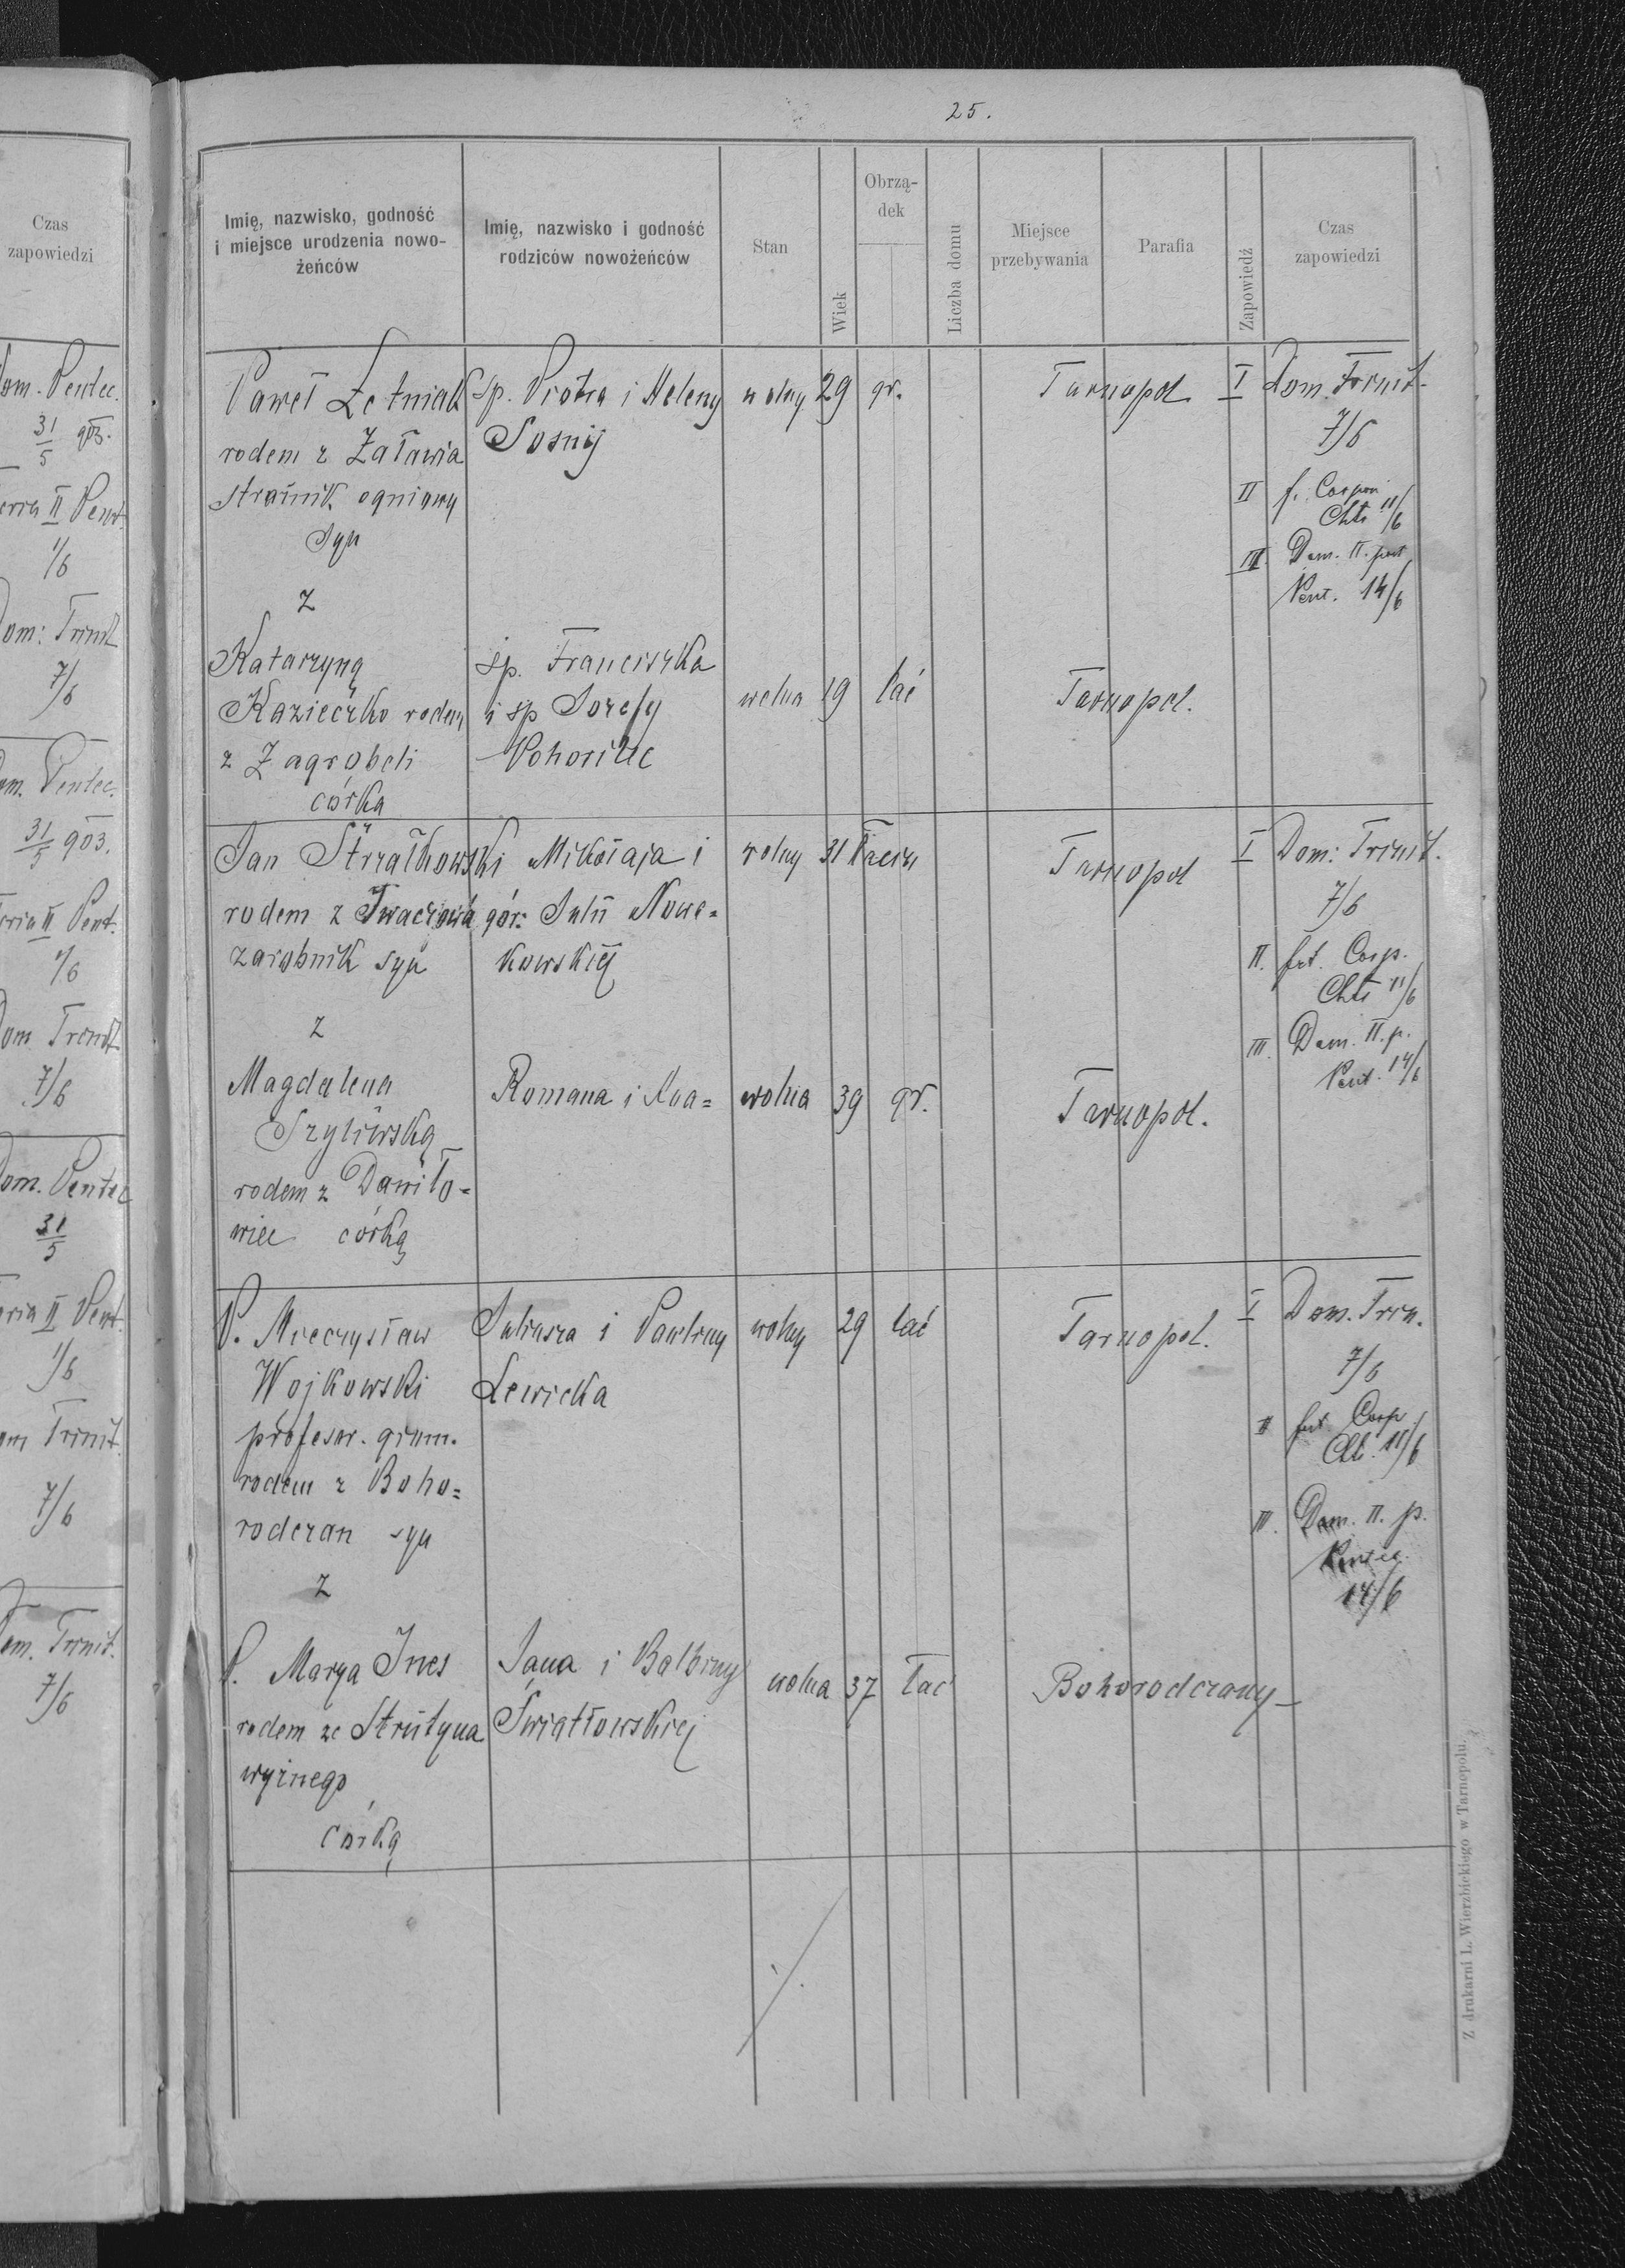 25.
Czas
zapowiedzi
om. Pentec.
31/5 903.
eria II Pent.
1/6
om: Trinit
7/6
om. Pentec.
31/5 903.
eria II Pent.
1/6
om Trinit
7/6
om. Pentec
31/5
eria II Pent.
1/6
om Trinit.
7/6
om. Trinit.
7/6
Imię, nazwisko, godność
i miejsce urodzenia nowo-
żeńców
Imię, nazwisko i godność
rodziców nowożeńców
Stan
Wiek
Obrzą-
dek
Liczba domu
Miejsce
przebywania
Parafia
Zapowiedź
Czas
zapowiedzi
Paweł Letniak śp. Piotra i Heleny wolny 29 gr. Tarnopol I Dom. Trinit.
rodem z Załawia Sosnij 7/6
strażnik ogniowy II f. Corpori
syn Chti 11/6
z III Dom. II. post
Pent. 14/6
Katarzyną śp. Franciszka
Kazieczko rodem i śp Józefy wolna 19 łać Tarnopol.
z Zagrobeli Pohorilec
córką
Jan Strzałkowski Mikołaja i wolny 31 łaciń Tarnopol I Dom: Trinit.
rodem z Iwaczowa gór: Julii Nowa= 7/6
zarobnik syn kowskiej II. fst. Corp.
Chti 11/6
z III. Dom. II. p.
Pent. 14/6
Magdalena Romana i Ana= wolna 39 gr. Tarnopol.
Szyliwską
rodem z Daniło=
wiec córką
P. Mieczysław Juliusza i Pauliny wolny 29 łać Tarnopol. I Dom. Trin.
Wojkowski Lewicka 7/6
profesor. gimn. II fst Corp.
Cht. 11/6
rodem z Boho=
rodczan syn III. Dom. II. p.
Pentec.
z 14/6
P. Marya Ines Jana i Balbiny wolna 37 łać Bohorodczany
rodem ze Strutyna Światłowskiej
wyżnego
córką
Z drukarni L. Wierzbickiego w Tarnopolu.